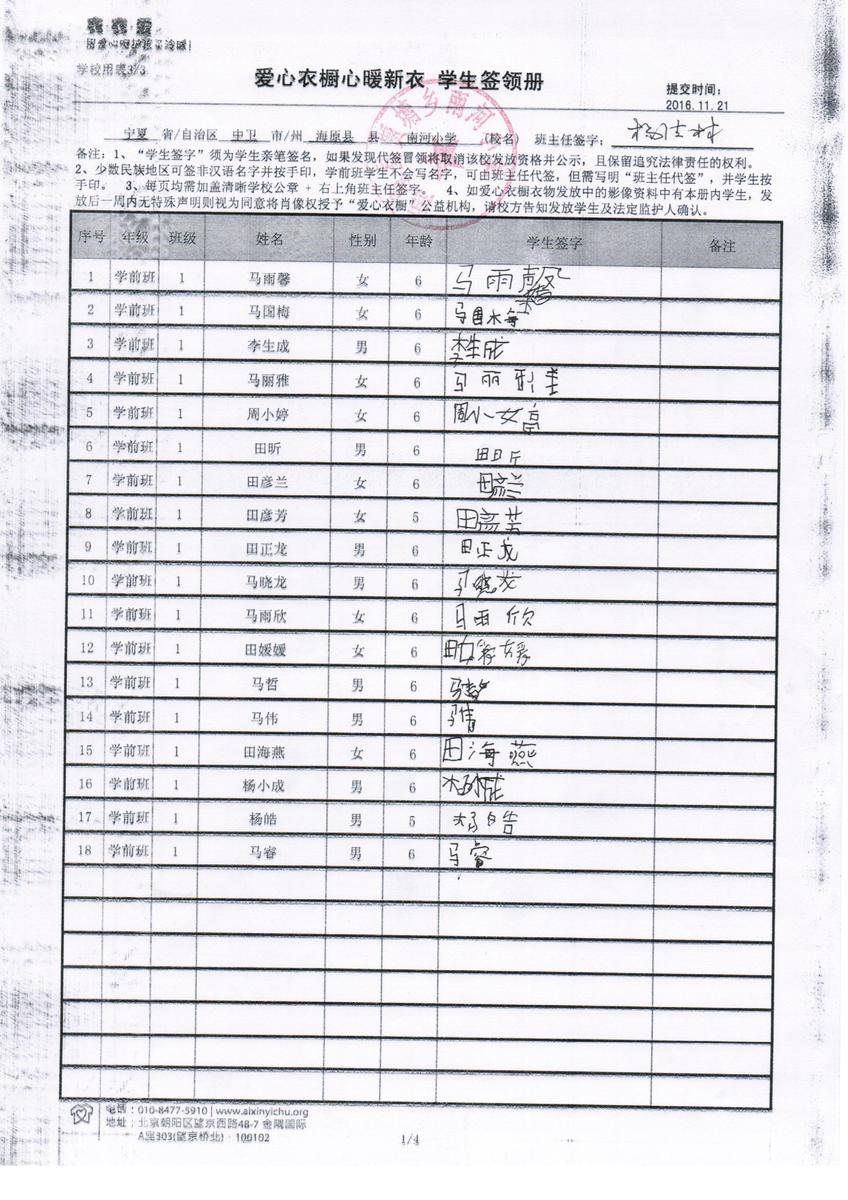 爱心衣橱
用爱心呵护孩子冷暖!
学校用表3/3
爱心衣橱心暖新衣 学生签领册
提交时间：
2016.11.21
宁夏 省/自治区 中卫 市/州 海原县 县 南河小学 (校名) 班主任签字：
备注：1、“学生签字”须为学生亲笔签名，如果发现代签冒领将取消该校发放资格并公示，且保留追究法律责任的权利。
2、少数民族地区可签非汉语名字并按手印，学前班学生不会写名字，可由班主任代签，但需写明“班主任代签”，并学生按
手印。 3、每页均需加盖清晰学校公章 + 右上角班主任签字。 4、如爱心衣橱衣物发放中的影像资料中有本册内学生，发
放后一周内无特殊声明则视为同意将肖像权授予“爱心衣橱”公益机构，请校方告知发放学生及法定监护人确认。
序号 年级 班级 姓名 性别 年龄 学生签字 备注
1 学前班 1 马雨馨 女 6 马雨馨
2 学前班 1 马国梅 女 6 马国梅
3 学前班 1 李生成 男 6 李生成
4 学前班 1 马丽雅 女 6 马丽雅
5 学前班 1 周小婷 女 6 周小婷
6 学前班 1 田昕 男 6 田昕
7 学前班 1 田彦兰 女 6 田彦兰
8 学前班 1 田彦芳 女 5 田彦芳
9 学前班 1 田正龙 男 6 田正龙
10 学前班 1 马晓龙 男 6 马晓龙
11 学前班 1 马雨欣 女 6 马雨欣
12 学前班 1 田媛媛 女 6 田媛媛
13 学前班 1 马哲 男 6 马哲
14 学前班 1 马伟 男 6 马伟
15 学前班 1 田海燕 女 6 田海燕
16 学前班 1 杨小成 男 6 杨小成
17 学前班 1 杨皓 男 5 杨皓
18 学前班 1 马睿 男 6 马睿
电话：010-8477-5910 | www.aixinyichu.org
地址：北京朝阳区望京西路48-7 金隅国际
A座303(望京桥北)· 100102
1/4